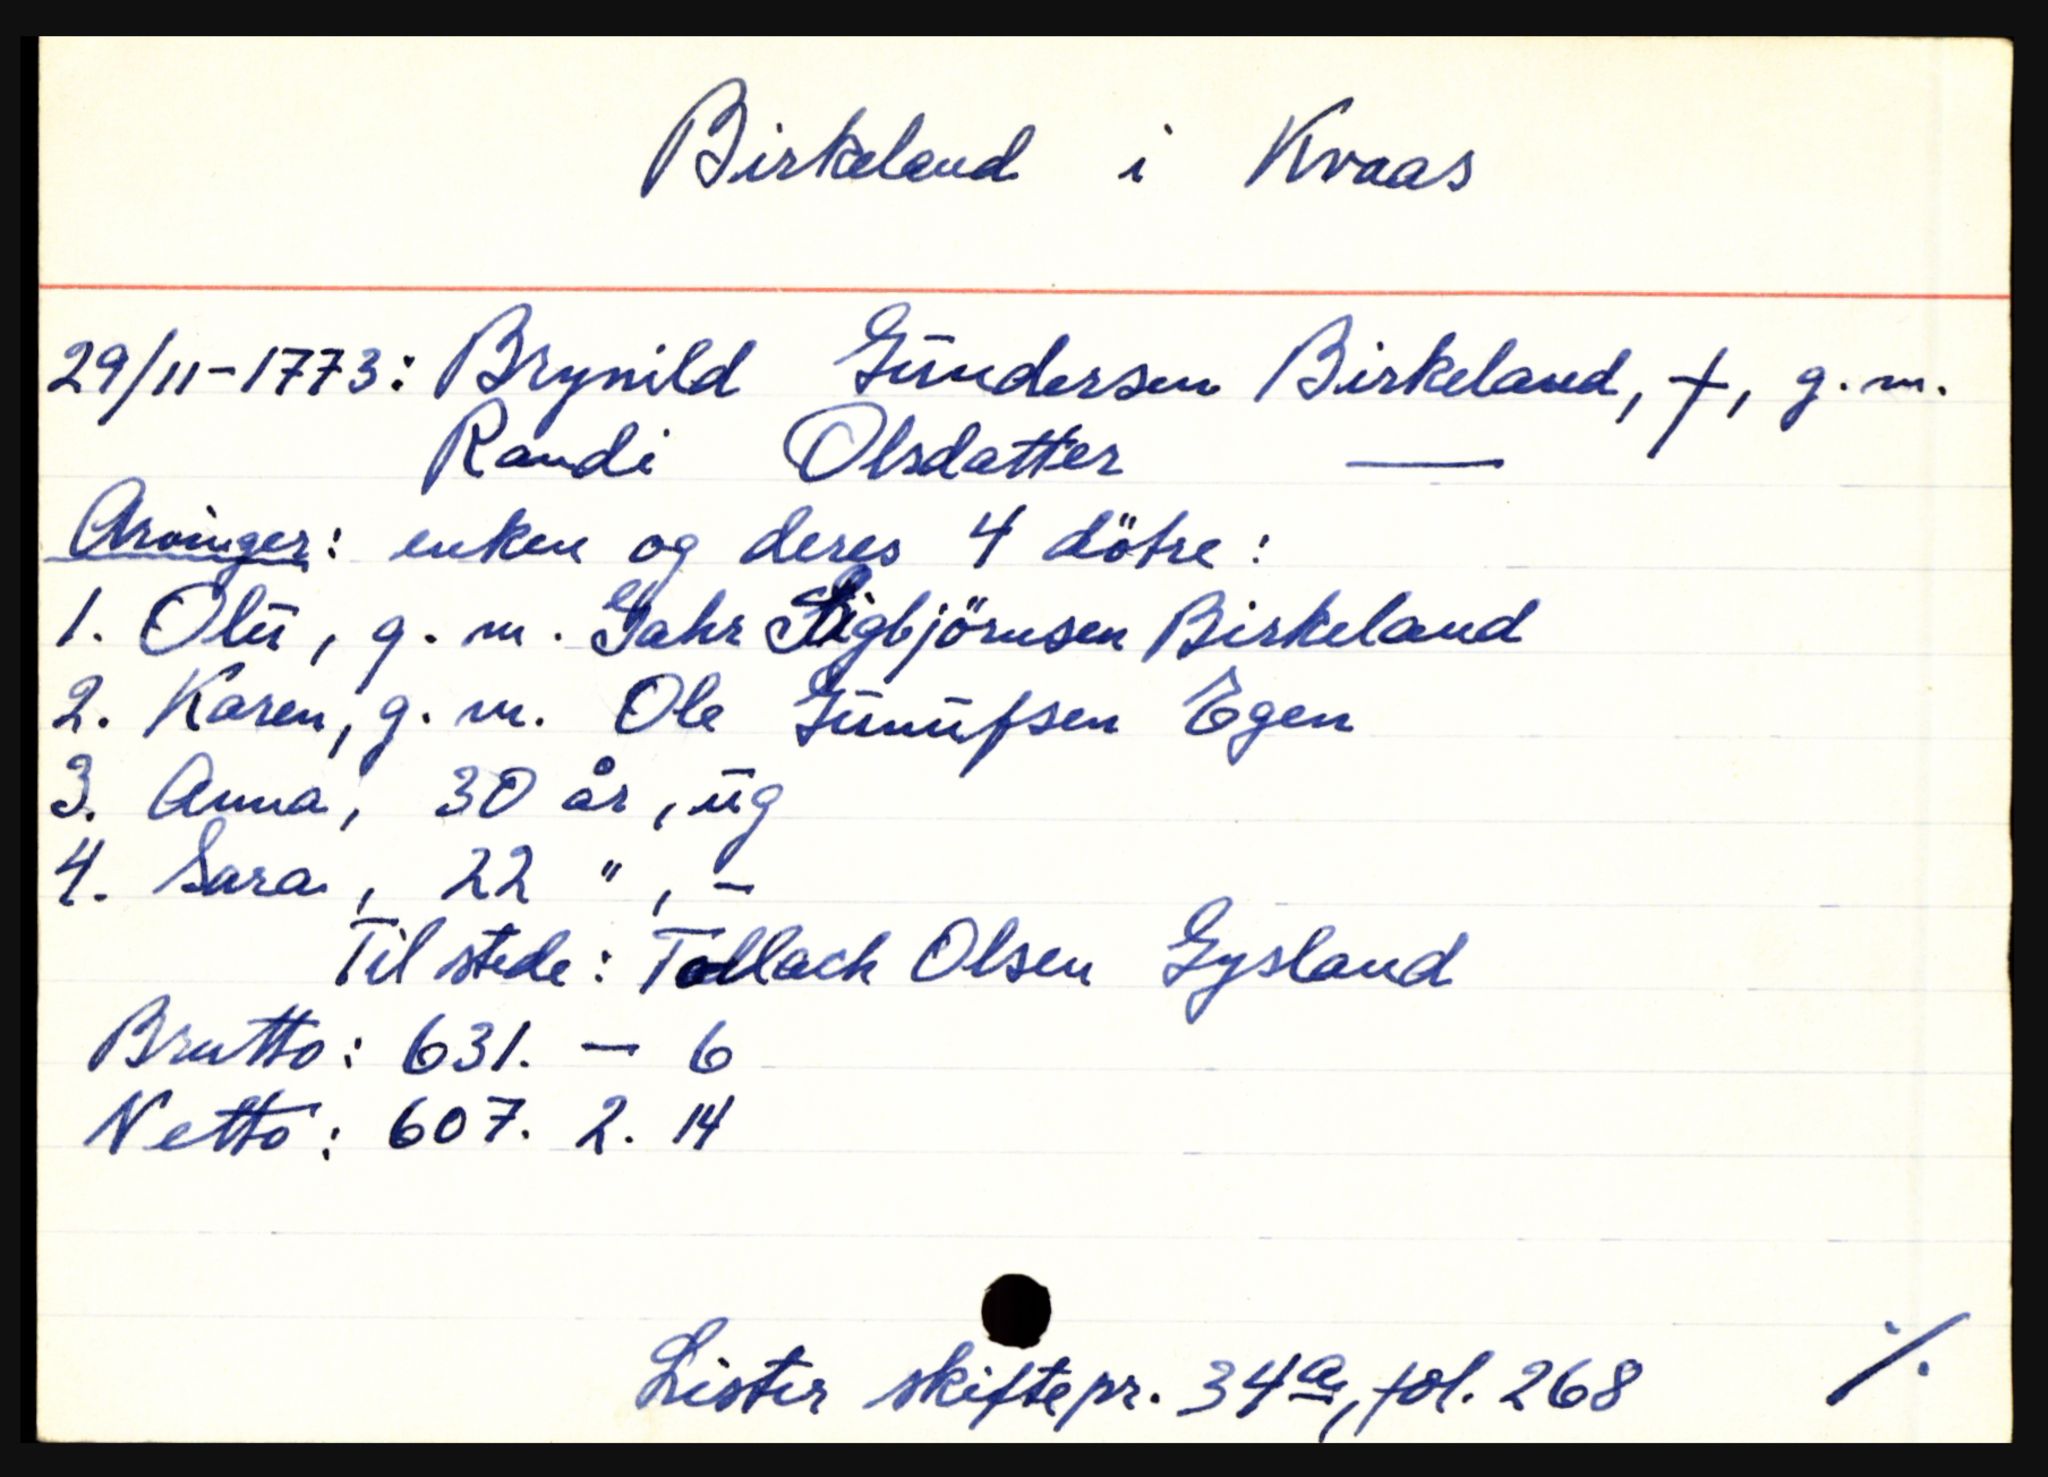 Birkeland i Kvaas
29/11-1773: Brynild Gundersen Birkeland, †, g. m.
Randi Olsdatter —
Arvinger: enken og deres 4 dötre:
1. Olu, g. m. Gahr Sigbjörnsen Birkeland
2. Karen, g. m. Ole Gunufsen Egen
3. Anna, 30 år, ug
4. Sara, 22 ", –
Til stede: Tollack Olsen Gysland
Brutto: 631. – 6
Netto: 607. 2. 14
Lister skiftepr. 34a, fol. 268 ·/.